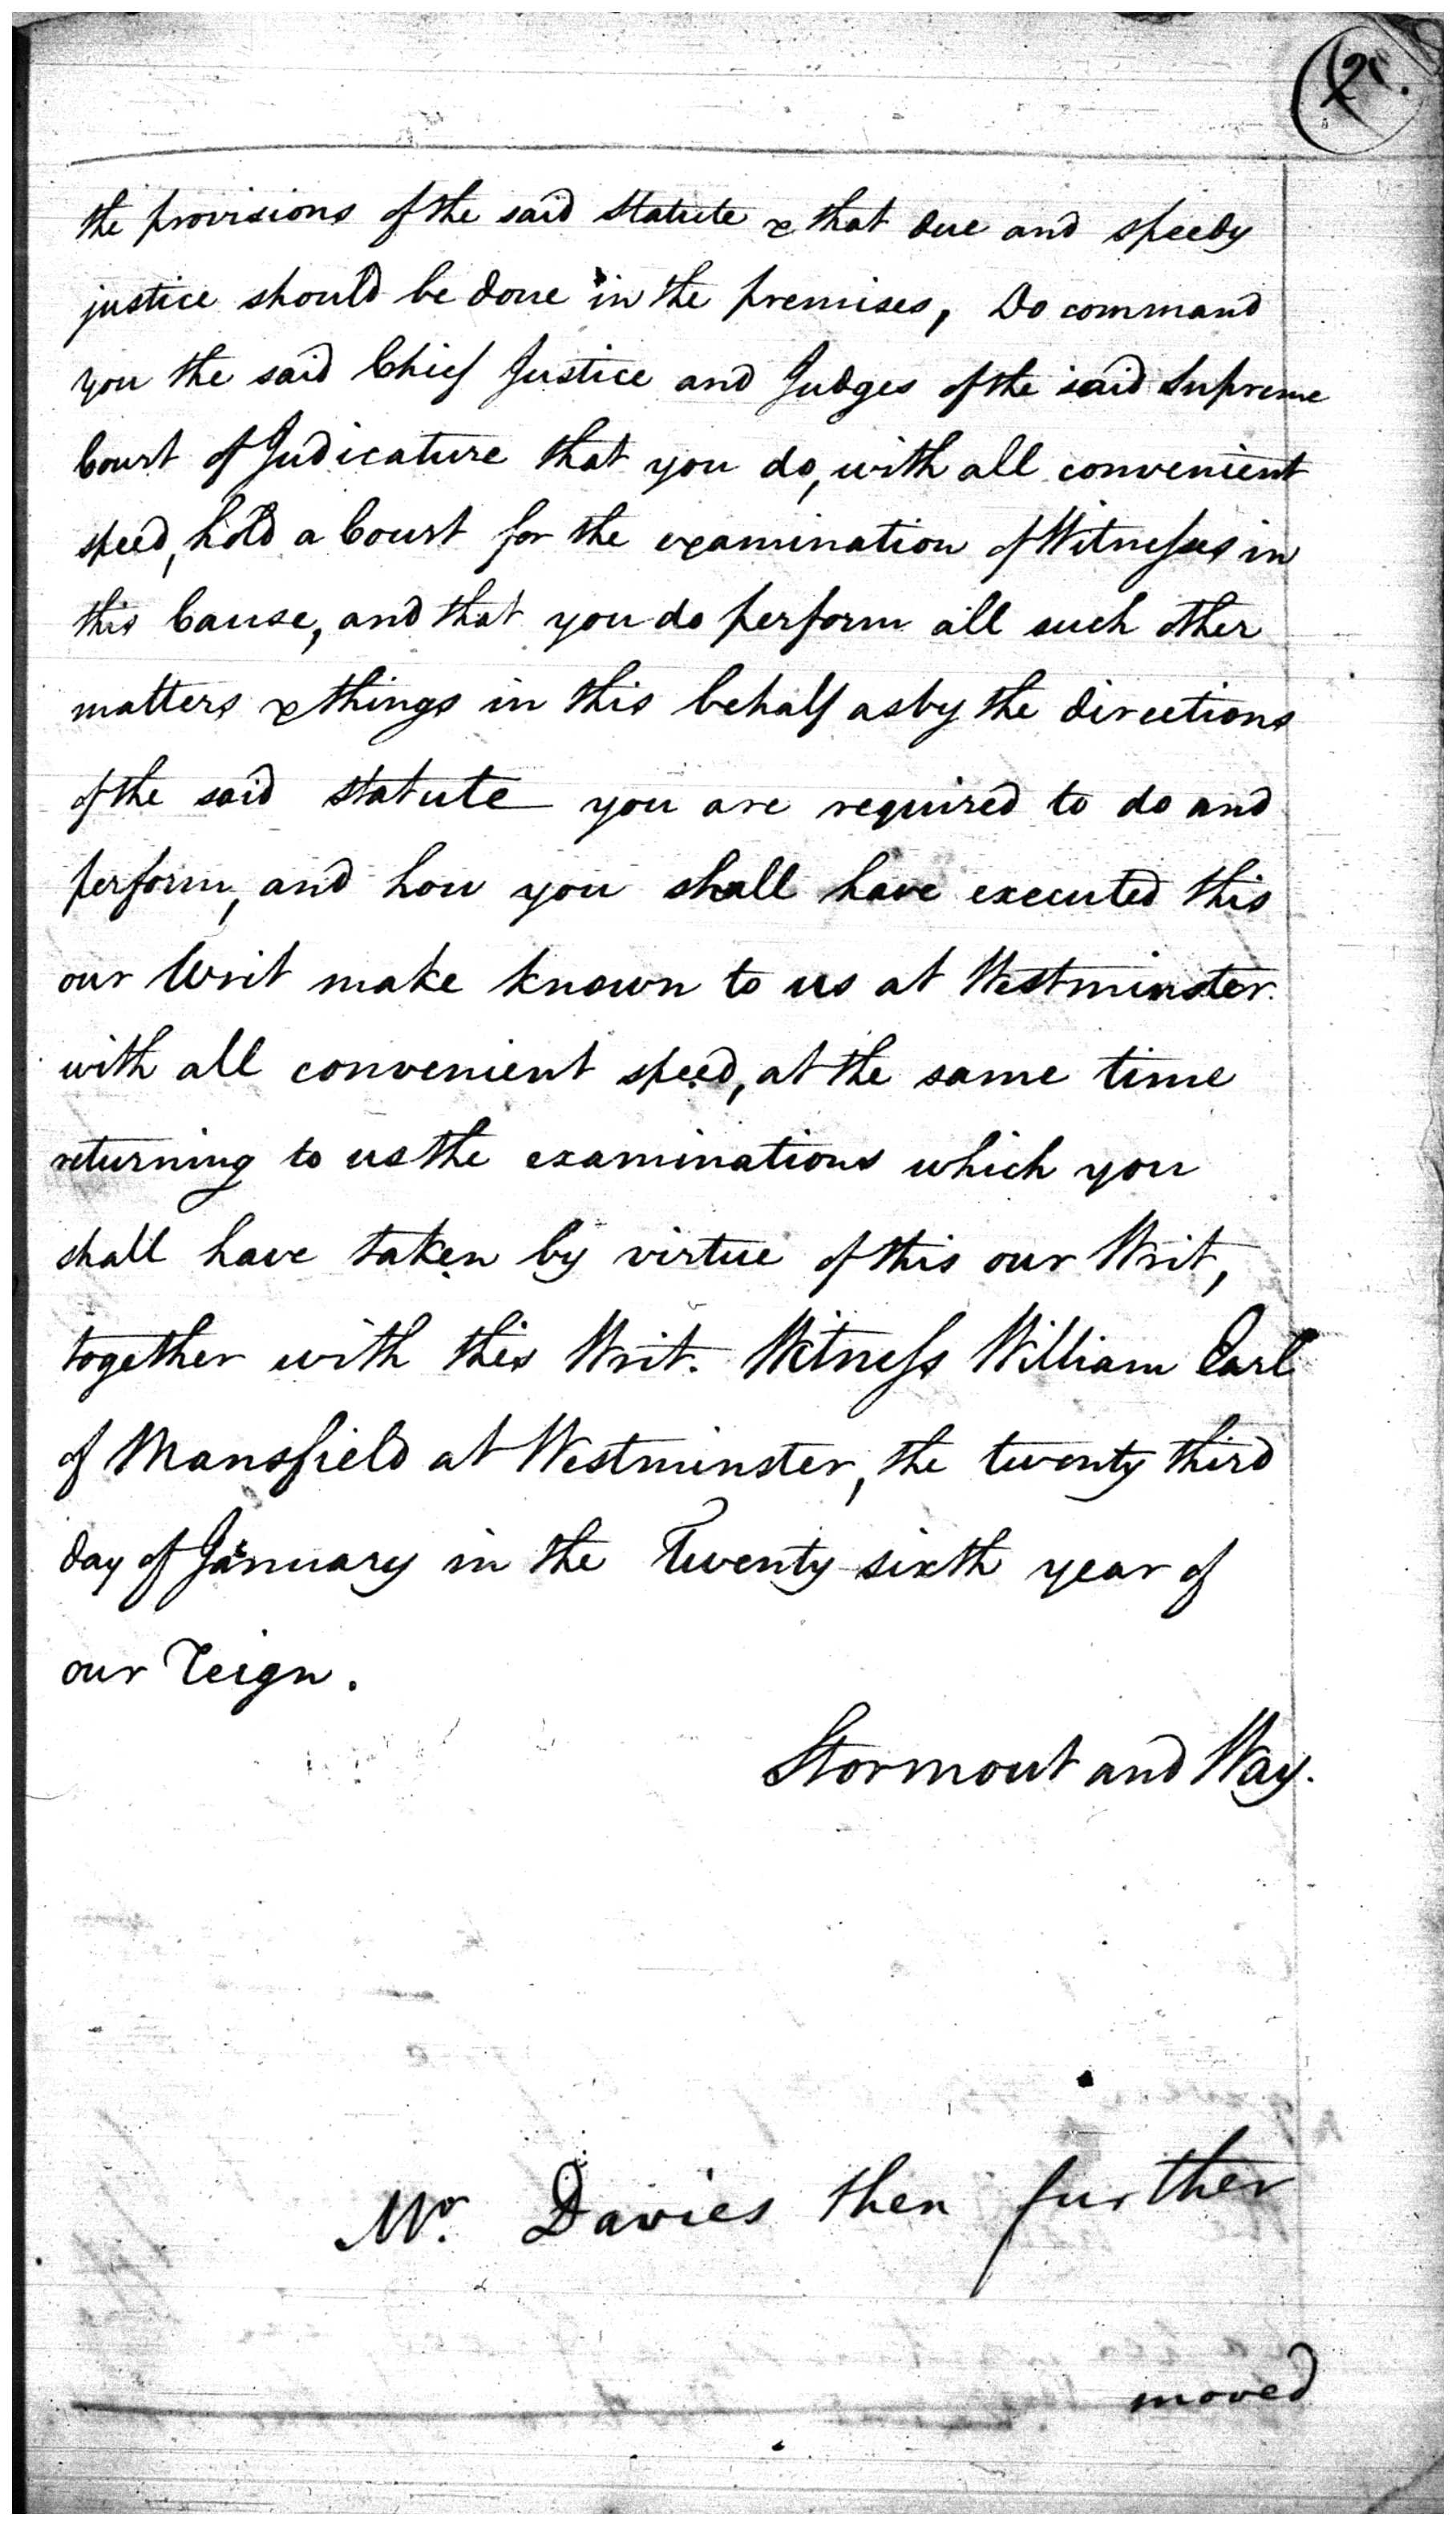 the provisions of the said statute & that due and speedy
justice should be done in the premises, Do command
you the said Chief Justice and Judges of the said Supreme
Court of Judicature that you do, with all convenient
speed, hold a Court for the examination of Witnesses in
this Cause, and that you do perform all such other
matters & things in this behalf as by the directions
of the said statute you are required to do and
perform, and how you shall have executed this
our Writ make known to us at Westminster.
with all convenient speed, at the same time
returning to us the examinations which you
shall have taken by virtue of this our Writ,
together with this Writ. Witness William Earl
of Mansfield at Westminster, the twenty third
day of January in the Twenty sixth year of
our Reign.
Stormont and Way.
Mr. Davies then further
moved